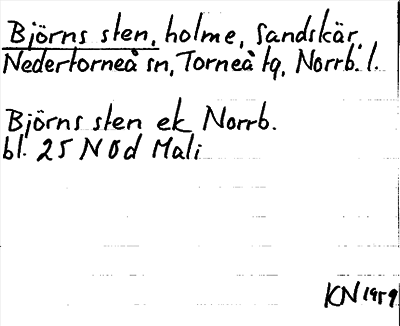 Björns sten, holme, Sandskär,
Nedertorneå sn, Torneå tg, Norrb. l.
Björns sten ek Norrb.
bl. 25 NÖd Mali
KN 1959